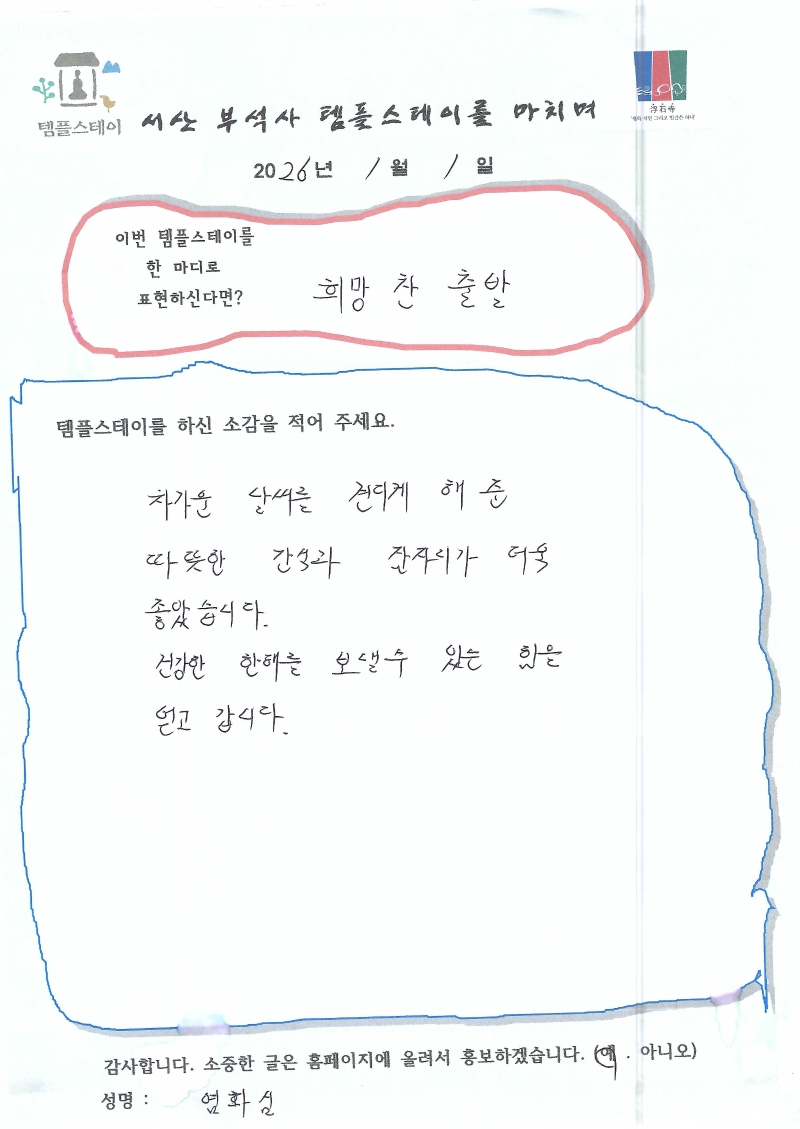 템플스테이
서산 부석사 템플스테이를 마치며
浮石寺
2026년 1월 1일
이번 템플스테이를
한 마디로
표현하신다면?
희망 찬 출발
템플스테이를 하신 소감을 적어 주세요.
차가운 날씨를 견디게 해 준
따뜻한 간식과 잠자리가 더욱
좋았습니다.
건강한 한해를 보낼수 있는 힘을
얻고 갑니다.
감사합니다. 소중한 글은 홈페이지에 올려서 홍보하겠습니다. (예 . 아니오)
성명 : 염화심